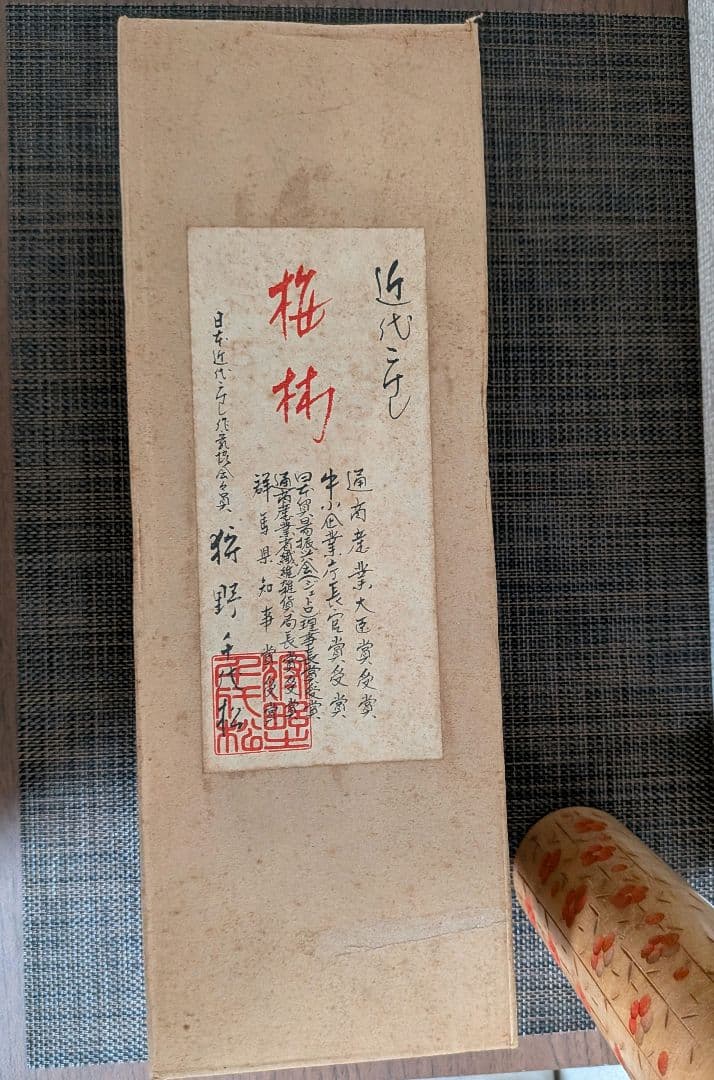 近代こけし
梅林
通商産業大臣賞受賞
中小企業庁長官賞受賞
日本貿易振興会 理事長賞受賞
通商産業省繊維雑貨局長賞受賞
群馬県知事賞受賞
日本近代こけし作家協会々員
狩野千代松
狩野千代松